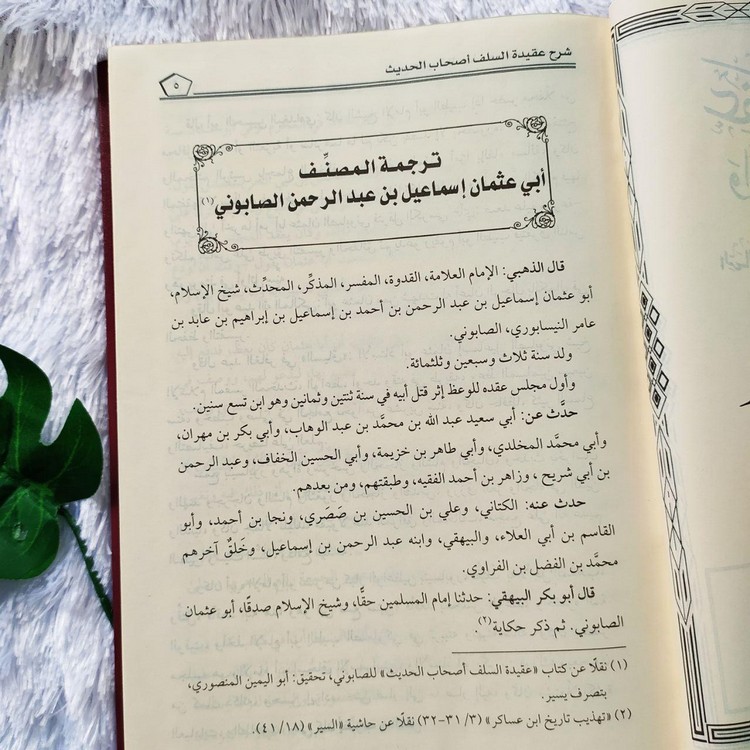 شرح عقيدة السلف أصحاب الحديث
٥
ترجمة المصنِّف
أبي عثمان إسماعيل بن عبد الرحمن الصابوني(١)
قال الذهبي: الإمام العلامة، القدوة، المفسر، المذكِّر، المحدِّث، شيخ الإسلام،
أبو عثمان إسماعيل بن عبد الرحمن بن أحمد بن إسماعيل بن إبراهيم بن عابد بن
عامر النيسابوري، الصابوني.
ولد سنة ثلاث وسبعين وثلثمائة.
وأول مجلس عقده للوعظ إثر قتل أبيه في سنة ثنتين وثمانين وهو ابن تسع سنين.
حدَّث عن: أبي سعيد عبد الله بن محمَّد بن عبد الوهاب، وأبي بكر بن مهران،
وأبي محمَّد المخلدي، وأبي طاهر بن خزيمة، وأبي الحسين الخفاف، وعبد الرحمن
بن أبي شريح، وزاهر بن أحمد الفقيه، وطبقتهم، ومن بعدهم.
حدث عنه: الكتاني، وعلي بن الحسين بن صَصَري، ونجا بن أحمد، وأبو
القاسم بن أبي العلاء، والبيهقي، وابنه عبد الرحمن بن إسماعيل، وخَلقٌ آخرهم
محمَّد بن الفضل بن الفراوي.
قال أبو بكر البيهقي: حدثنا إمام المسلمين حقًّا، وشيخ الإسلام صدقًا، أبو عثمان
الصابوني. ثم ذكر حكاية(٢).
(١) نقلًا عن كتاب «عقيدة السلف أصحاب الحديث» للصابوني، تحقيق: أبو اليمين المنصوري،
بتصرف يسير.
(٢) «تهذيب تاريخ ابن عساكر» (٣/ ٣١-٣٢) نقلًا عن حاشية «السير» (١٨/ ٤١).